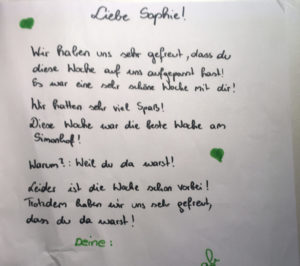 Liebe Sophie!
Wir haben uns sehr gefreut, dass du
diese Woche auf uns aufgepasst hast!
Es war eine sehr schöne Woche mit dir!
Wir hatten sehr viel Spaß!
Diese Woche war die beste Woche am
Simonhof!
Warum?: Weil du da warst!
Leider ist die Woche schon vorbei!
Trotzdem haben wir uns sehr gefreut,
dass du da warst!
Deine: